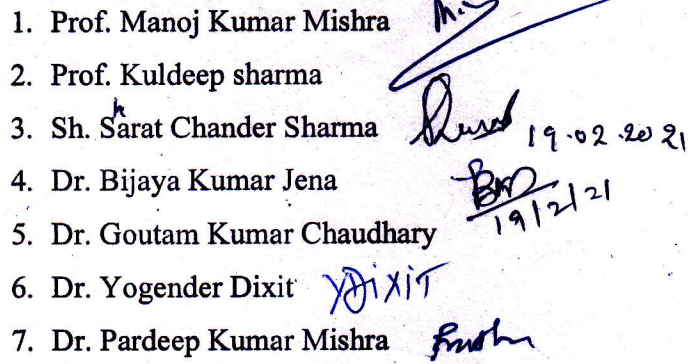 1. Prof. Manoj Kumar Mishra
2. Prof. Kuldeep sharma
3. Sh. Sharat Chander Sharma 19.02.2021
4. Dr. Bijaya Kumar Jena
19/2/21
5. Dr. Goutam Kumar Chaudhary
6. Dr. Yogender Dixit YDixiT
7. Dr. Pardeep Kumar Mishra